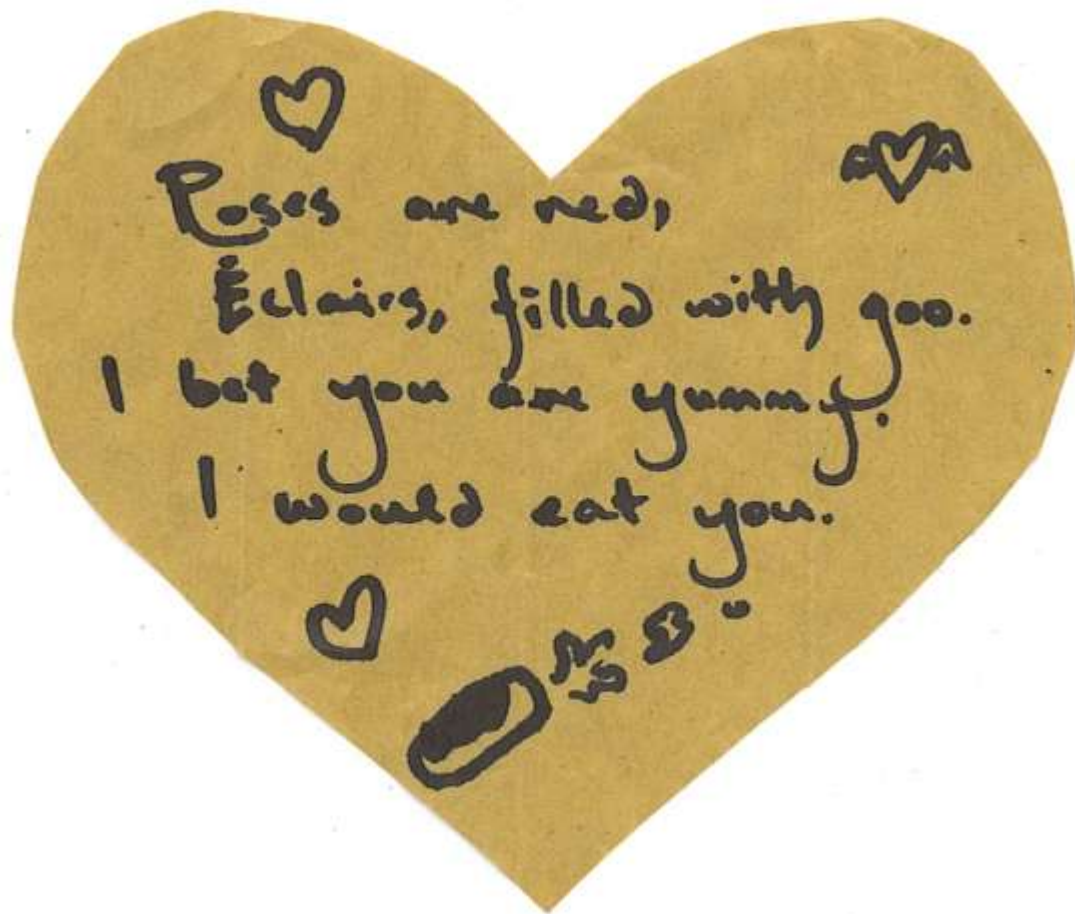 Roses are red,
Éclairs, filled with goo.
I bet you are yummy.
I would eat you.